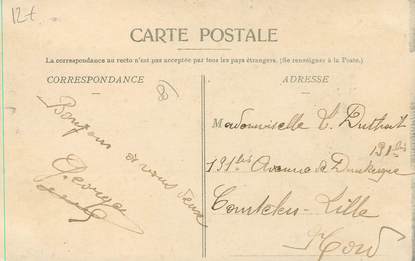 12€
CARTE POSTALE
La correspondance au recto n'est pas acceptée par tous les pays étrangers. (Se renseigner à la Poste.)
CORRESPONDANCE
ADRESSE
Bonjour
à vous deux
Georges
Mademoiselle
191 bis
191 bis Avenue de Dunkerque
Lille
Nord